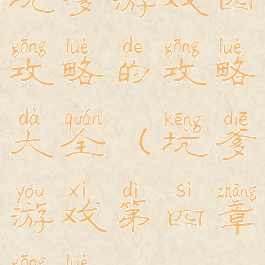 坑爹游戏四
gōng lüè de gōng lüè
攻略的攻略
dà quán kēng diē
大全（坑爹
yóu xì dì sì zhāng
游戏第四章
gōng lüè